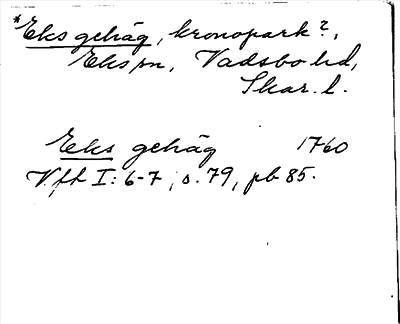 *Eks gehäg, kronopark?,
Eks sn, Vadsbo hd,
Skar. l.
Eks gehäg 1760
Vft I: 6-7, s. 79, pb 85.